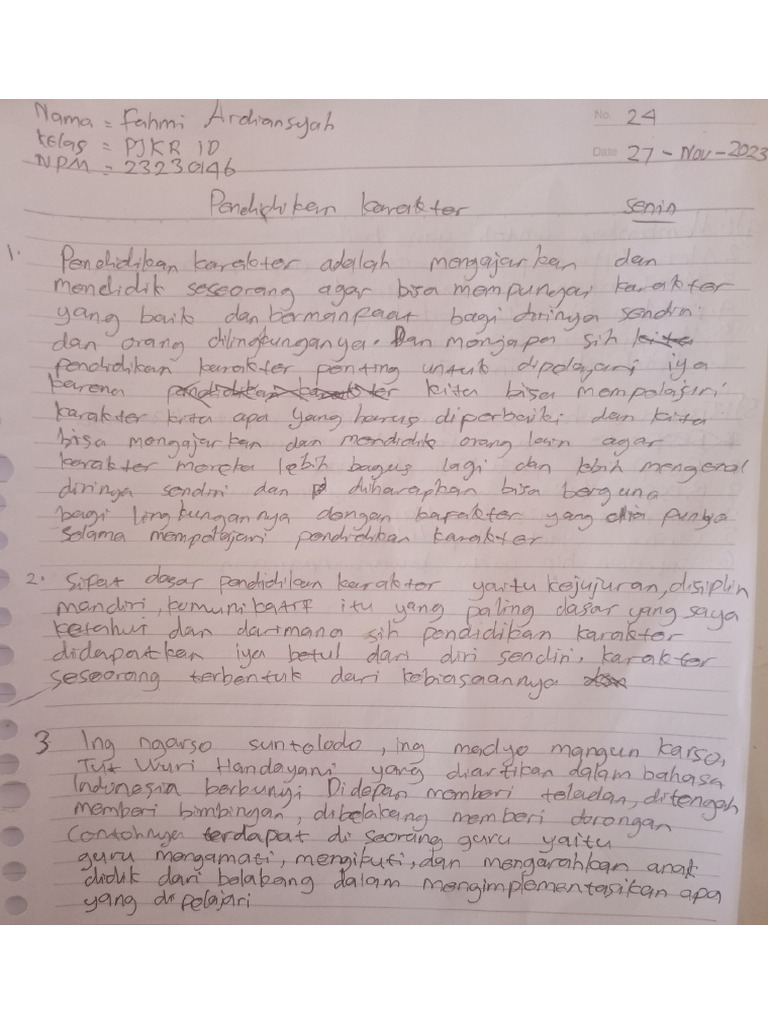 Nama = Fahmi Ardiansyah
No. 24
Kelas = PJKR 1D
Date 27 - Nov - 2023
NPM = 23230146
Pendidikan karakter
senin
1. Pendidikan karakter adalah mengajarkan dan
mendidik seseorang agar bisa mempunyai karakter
yang baik dan bermanfaat bagi dirinya sendiri
dan orang dilingkunganya. Dan mengapa sih kita
pendidikan karakter penting untuk dipelajari iya
karena pendidikan karakter kita bisa mempelajari
karakter kita apa yang harus diperbaiki dan kita
bisa mengajarkan dan mendidik orang lain agar
karakter mereka lebih bagus lagi dan lebih mengenal
dirinya sendiri dan diharapkan bisa berguna
bagi lingkungannya dengan karakter yang dia punya
selama mempelajari pendidikan karakter
2. Sifat dasar pendidikan karakter yaitu kejujuran, disiplin
mandiri, kumunikatif itu yang paling dasar yang saya
ketahui dan darimana sih pendidikan karakter
didapatkan iya betul dari diri sendiri, karakter
seseorang terbentuk dari kebiasaannya
3 Ing ngarso suntolodo, ing madyo mangun karso,
Tut Wuri Handayani yang diartikan dalam bahasa
Indonesia berbunyi Didepan memberi teladan, ditengah
memberi bimbingan, dibelakang memberi dorongan
Contohnya terdapat di seorang guru yaitu
guru mengamati, mengikuti, dan mengarahkan anak
didik dari belakang dalam mengimplementasikan apa
yang di pelajari